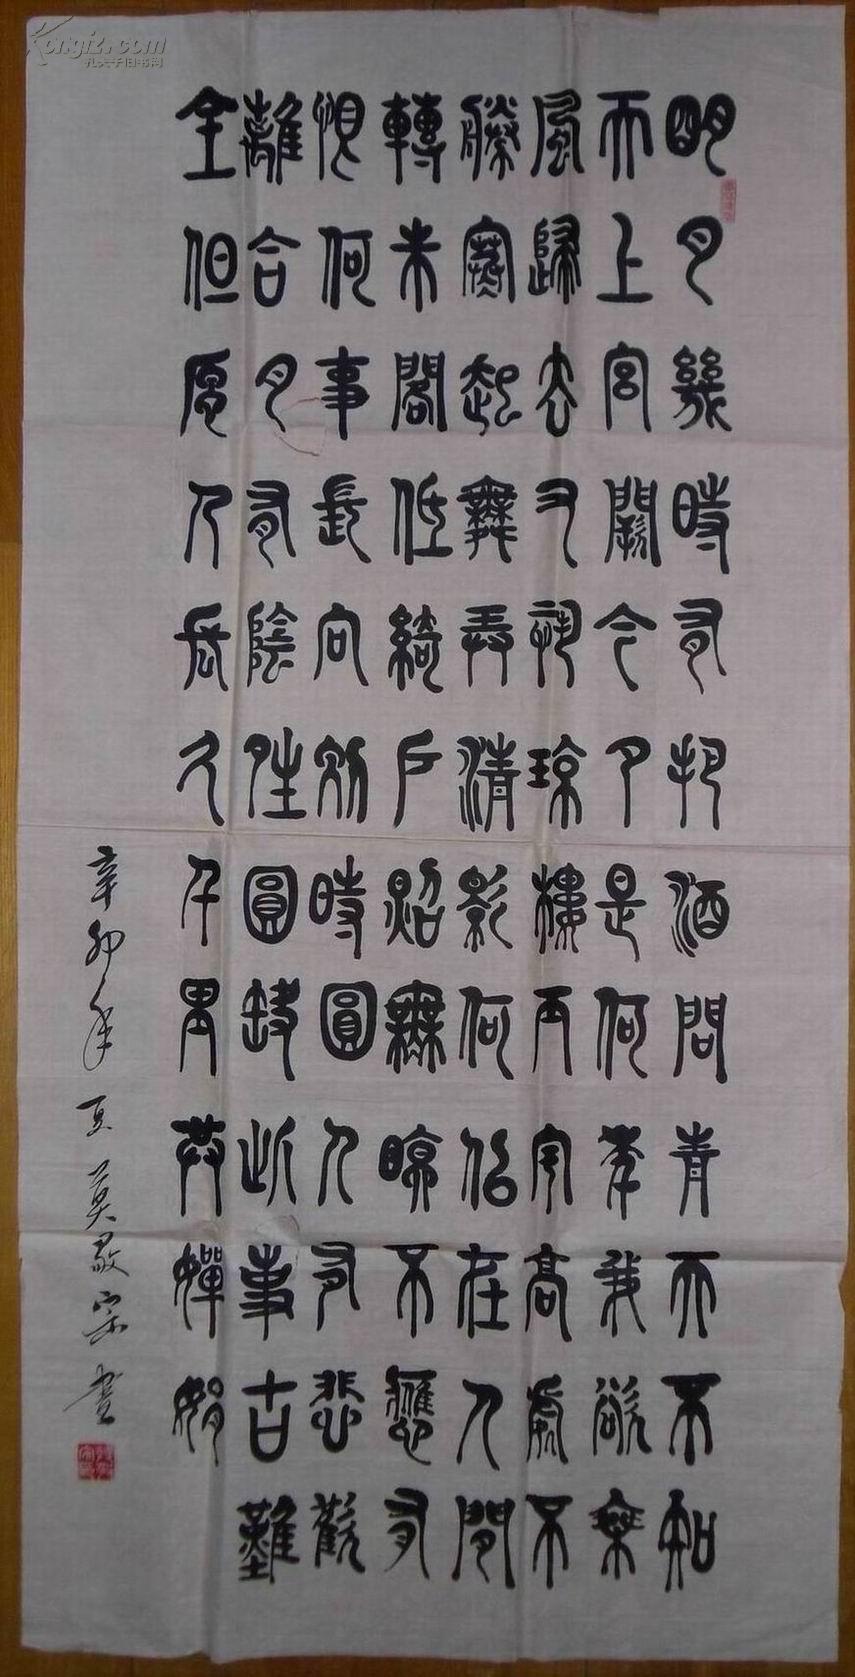 明月幾時有把酒問青天不知
天上宮闕今夕是何年我欲乘
風歸去又恐琼樓玉宇高處不
勝寒起舞弄清影何似在人間
轉朱閣低綺戶照無眠不應有
恨何事長向別時圓人有悲歡
離合月有陰晴圓缺此事古難
全但愿人長久千里共嬋娟
辛卯年夏莫敬宗書
Kongfz.com
孔夫子旧书网